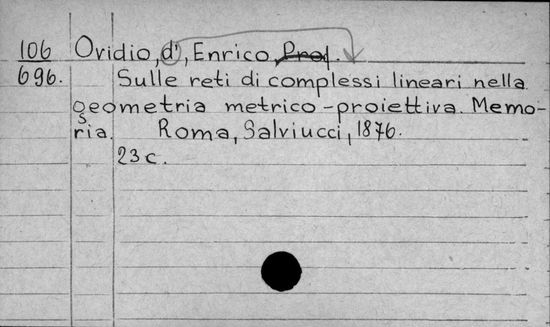 106 Ovidio, d', Enrico, Prof.
696. Sulle reti di complessi lineari nella
geometria metrico-proiettiva. Memo-
ria. Roma, Salviucci, 1876.
23 c.